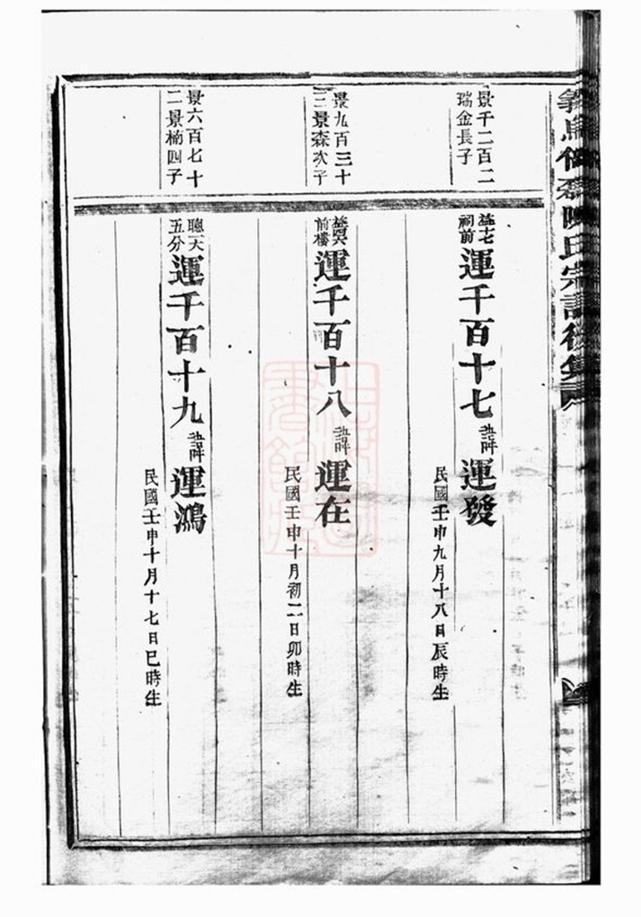 景千二百二
瑞金長子
祠前
運千百十七
諱
運發
民國壬申九月十八日辰時生
景九百三十
三景森次子
前樓
運千百十八
諱
運在
民國壬申十月初二日卯時生
景六百七十
二景楠四子
聰六
五分
運千百十九
諱
運鴻
民國壬申十月十七日巳時生